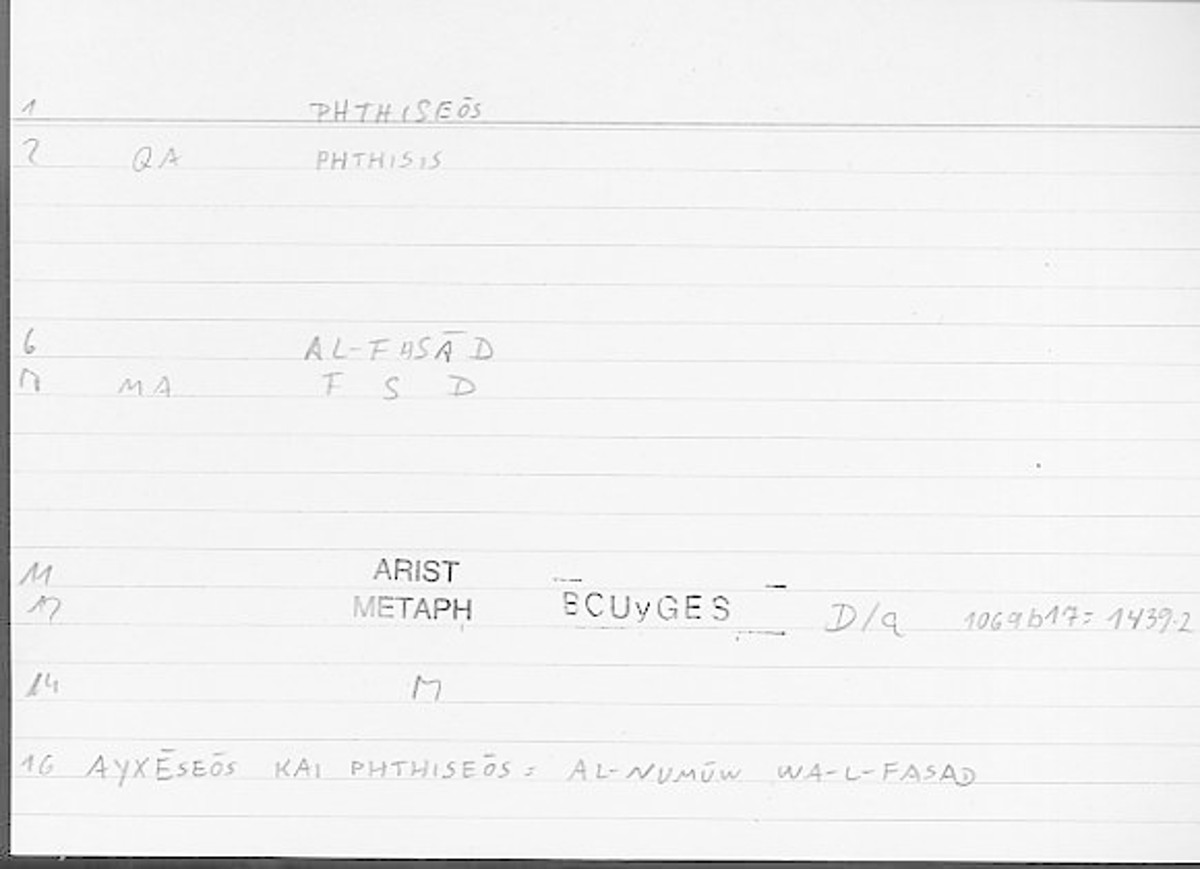 1 PHTHISEŌS
2 QA PHTHISIS
6 AL-FASĀD
7 MA F S D
11 ARIST
12 METAPH BCUyGES D/a 1069b17= 1439.2
14 M
16 AYXĒSEŌS KAI PHTHISEŌS = AL-NUMŪW WA-L-FASAD